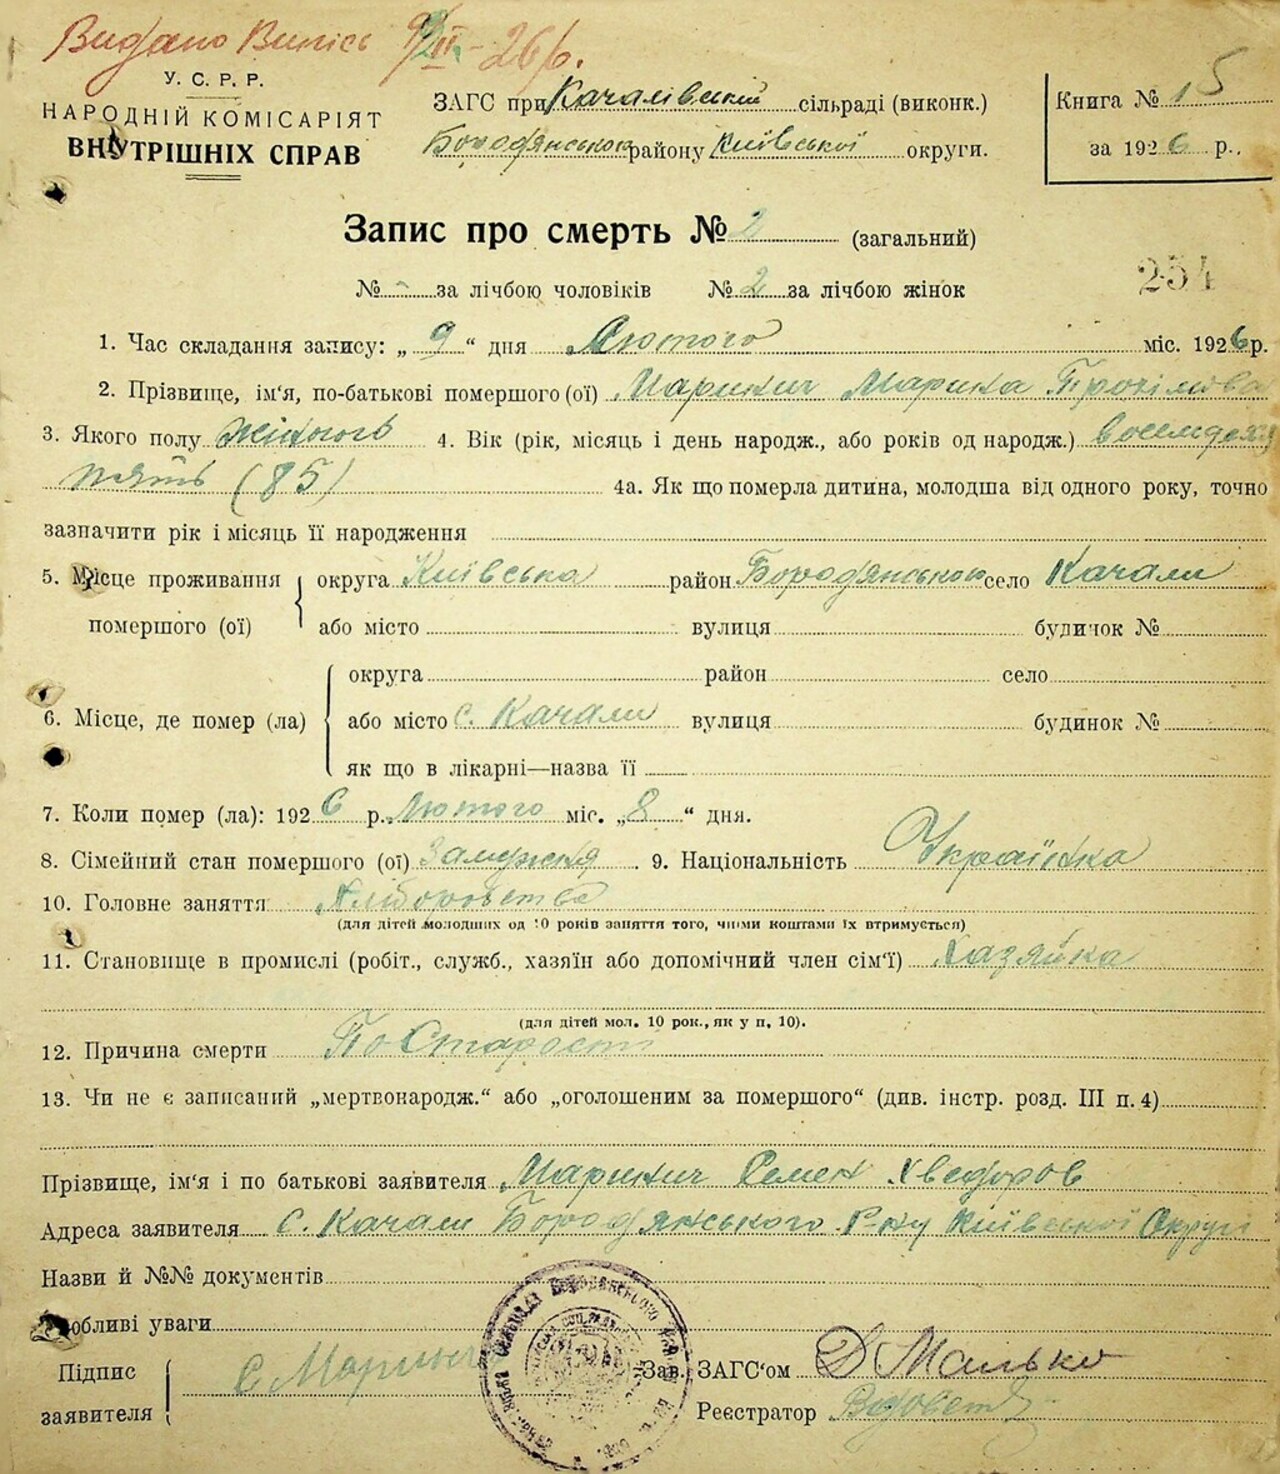 Видано Випісь
У. С. Р. Р.
НАРОДНІЙ КОМІСАРІЯТ
ВНУТРІШНІХ СПРАВ
ЗАГС при Качалівській сільраді (виконк.)
Бородянського району Київської округи.
Книга № 15
за 1926 р.
Запис про смерть № 2 (загальний)
№ - за лічбою чоловіків № 2 за лічбою жінок
254
1. Час складання запису: „9“ дня Лютого міс. 1926 р.
2. Прізвище, ім'я, по-батькові помершого (ої) Марина
3. Якого полу Жіного 4. Вік (рік, місяць і день народж., або років од народж.) восемдесят
пять (85) 4а. Як що померла дитина, молодша від одного року, точно
зазначити рік і місяць її народження
5. Місце проживання помершого (ої) округа Київська район Бородянського село Качали
або місто вулиця будинок №
6. Місце, де помер (ла) округа район село
або місто с. Качали вулиця будинок №
як що в лікарні—назва її
7. Коли помер (ла): 1926 р. Лютого міс. „8“ дня.
8. Сімейний стан помершого (ої) Замужня 9. Національність Українка
10. Головне заняття Хліборобство
(для дітей молодших од 10 років заняття того, чиїми коштами їх втримується)
11. Становище в промислі (робіт., служб., хазяїн або допомічний член сім'ї) Хазяйка
(для дітей мол. 10 рок., як у п. 10).
12. Причина смерти По Старості
13. Чи не є записаний „мертвонародж.“ або „оголошеним за помершого“ (див. інстр. розд. III п. 4)
Прізвище, ім'я і по батькові заявителя Семен Хведоров
Адреса заявителя с. Качали Бородянського Р-ну Київської Округи
Назви й №№ документів
Особливі уваги
Підпис заявителя
Зав. ЗАГС'ом Д Малько
Реєстратор